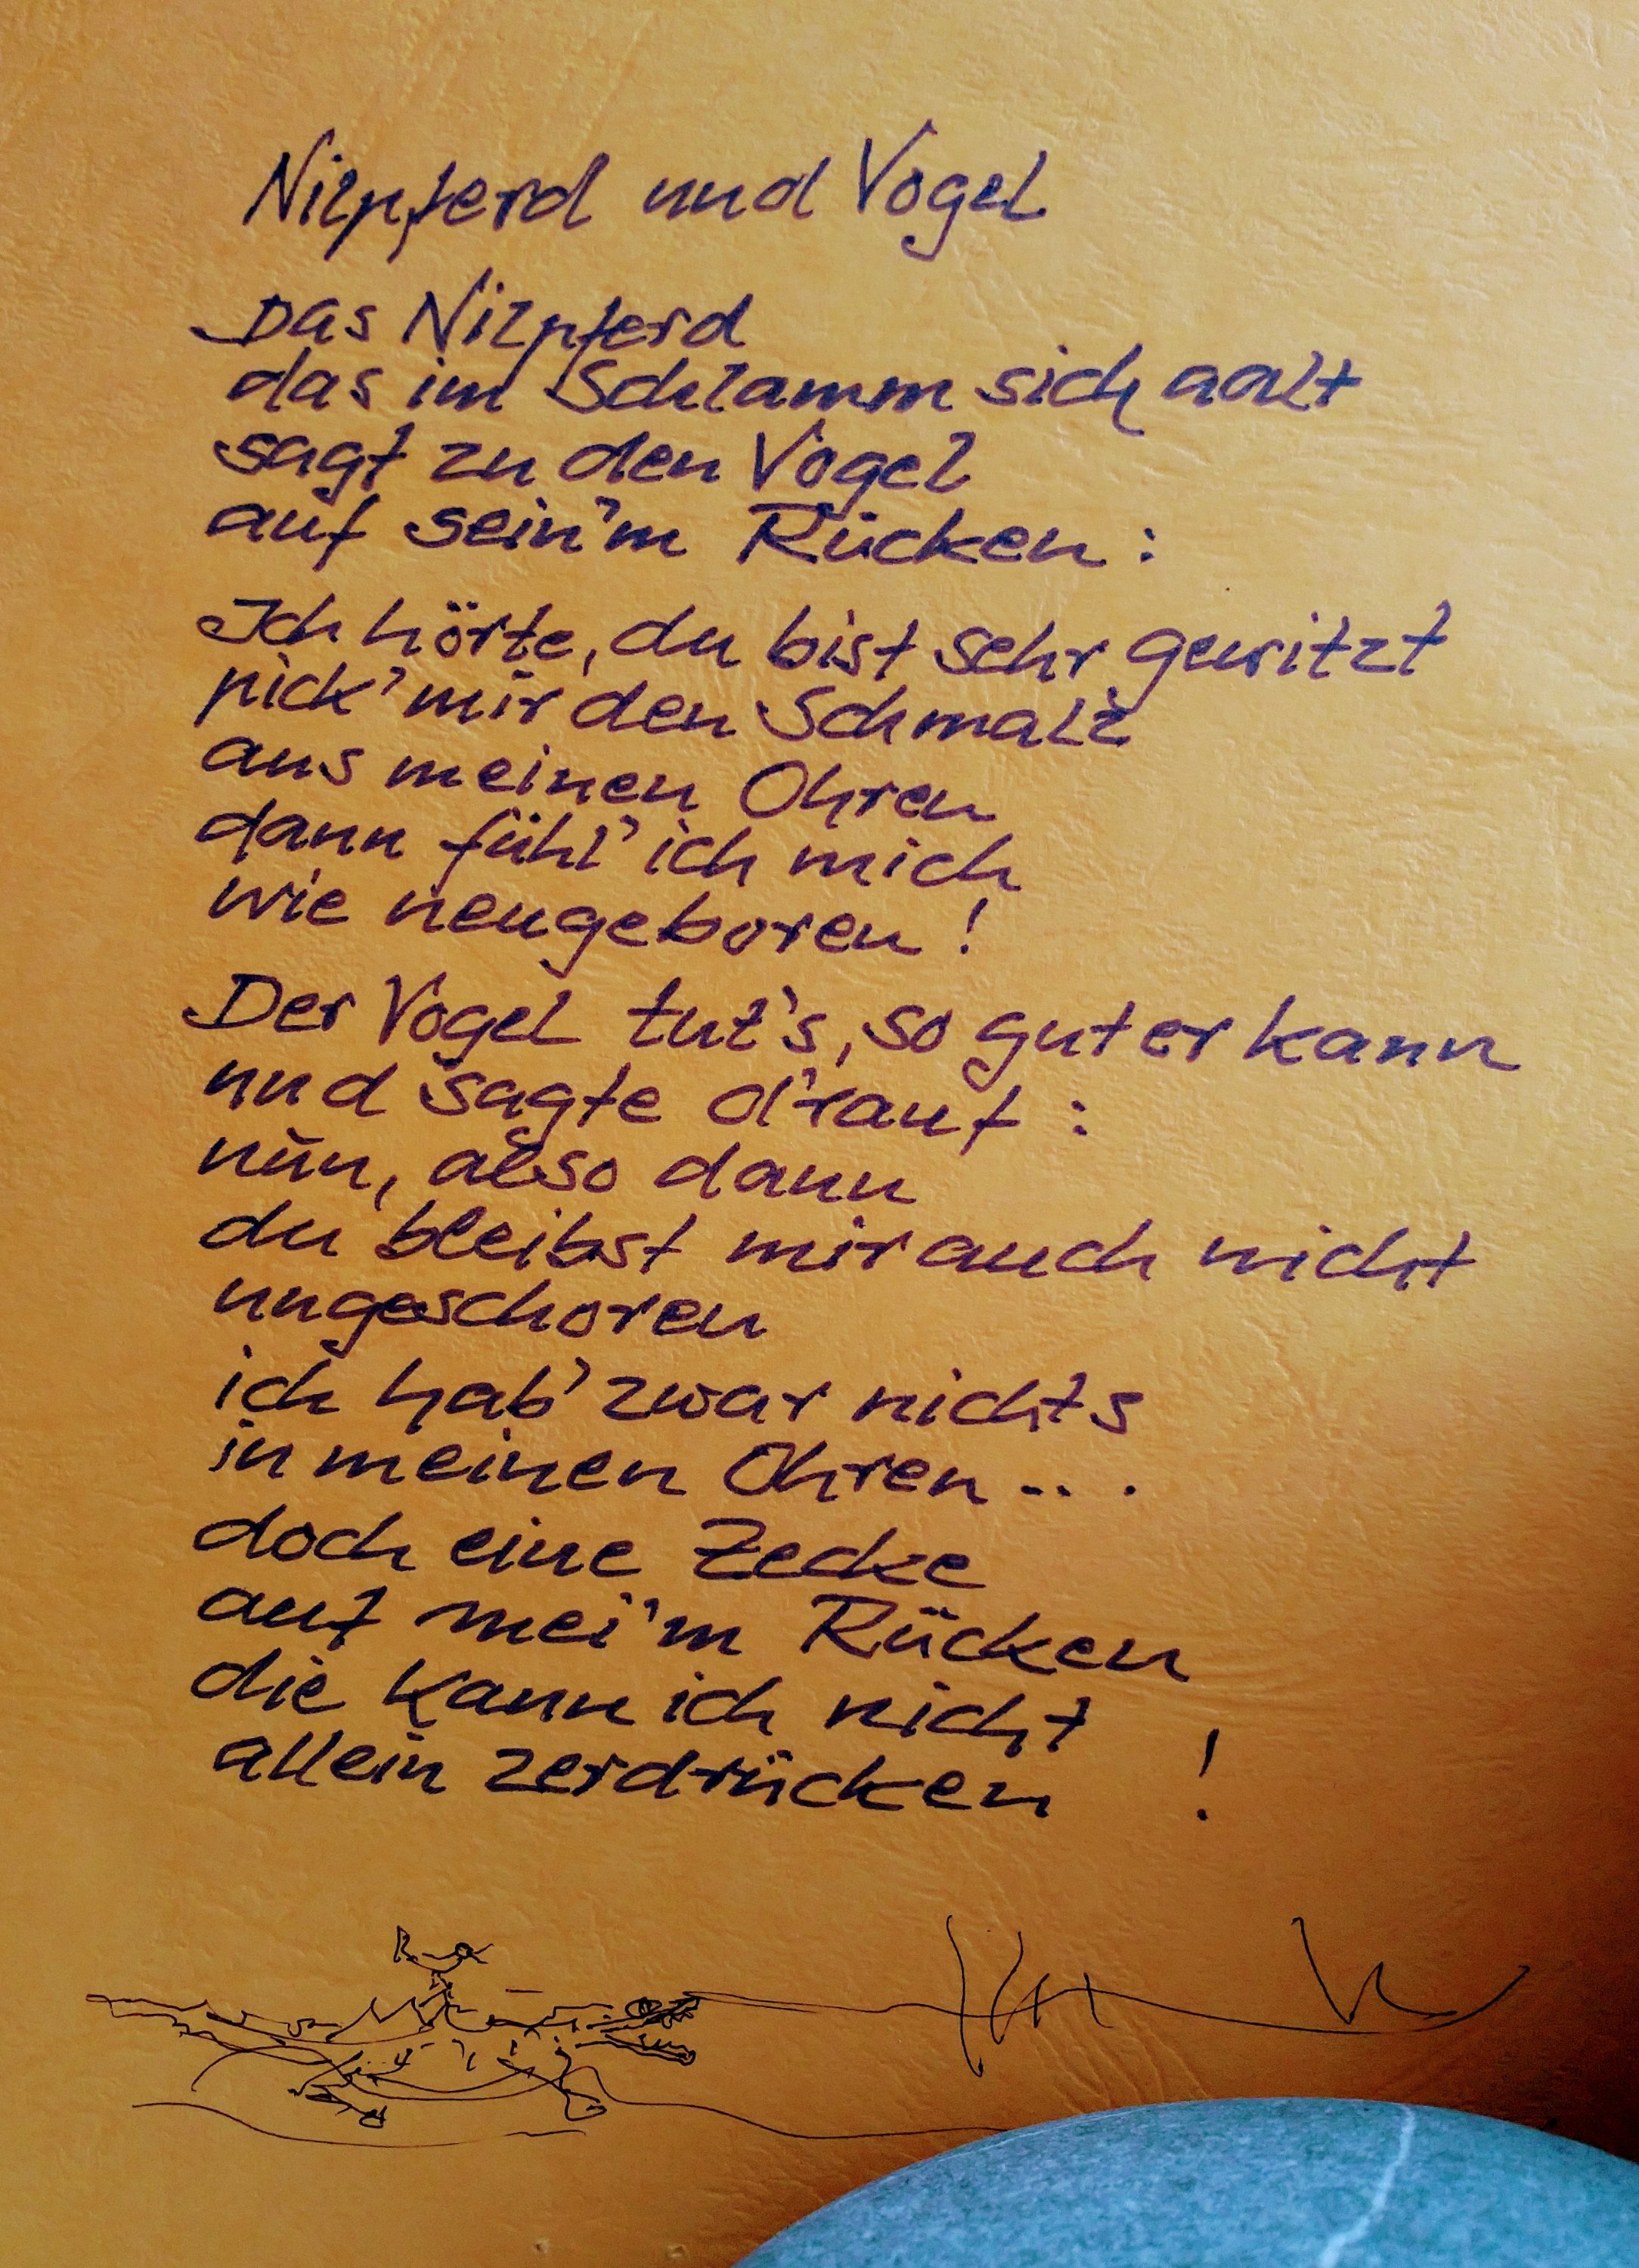 Nilpferd und Vogel
Das Nilpferd
das im Schlamm sich aalt
sagt zu den Vogel
auf sein'm Rücken:
Ich hörte, du bist sehr gewitzt
pick' mir den Schmalz
aus meinen Ohren
dann fühl' ich mich
wie neugeboren!
Der Vogel tut's, so gut er kann
und sagte d'rauf:
nun, also dann
du bleibst mir auch nicht
ungeschoren
ich hab' zwar nichts
in meinen Ohren...
doch eine Zecke
auf mei'm Rücken
die kann ich nicht
allein zerdrücken!